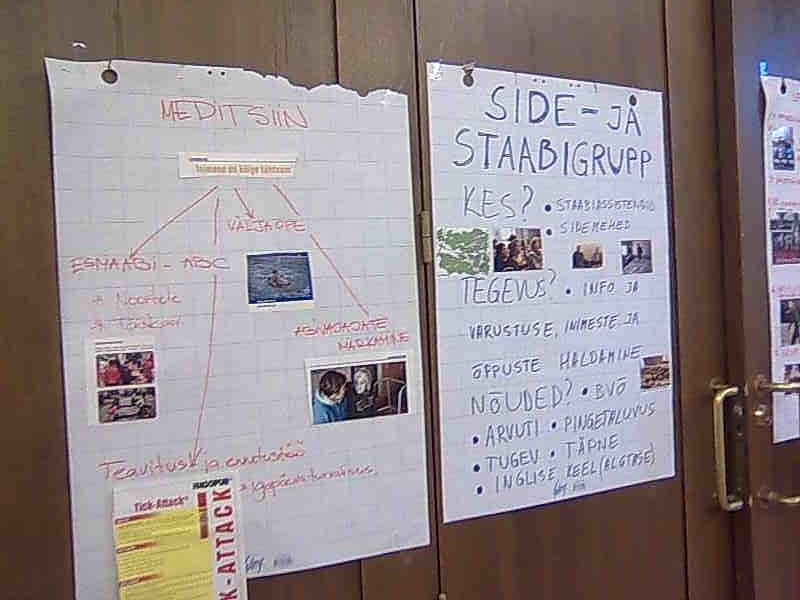 MEDITSIIN
Inimene on kõige tähtsam
VÄLJAÕPE
ESMAABI - ABC
→ Noortele
ABIVAJAJATE
MÄRKAMINE
Teavitus ja ennetustöö
Tick-Attack
K-ATTACK
SIDE- JA
STAABIGRUPP
KES? • STAABIASSISTENDID
• SIDEMEHED
TEGEVUS? • INFO JA
VARUSTUSE, INIMESTE JA
ÕPPUSTE HALDAMINE
NÕUDED? • BVÕ
• ARVUTI • PINGETALUVUS
• TUGEV • TÄPNE
• INGLISE KEEL (ALGTASE)